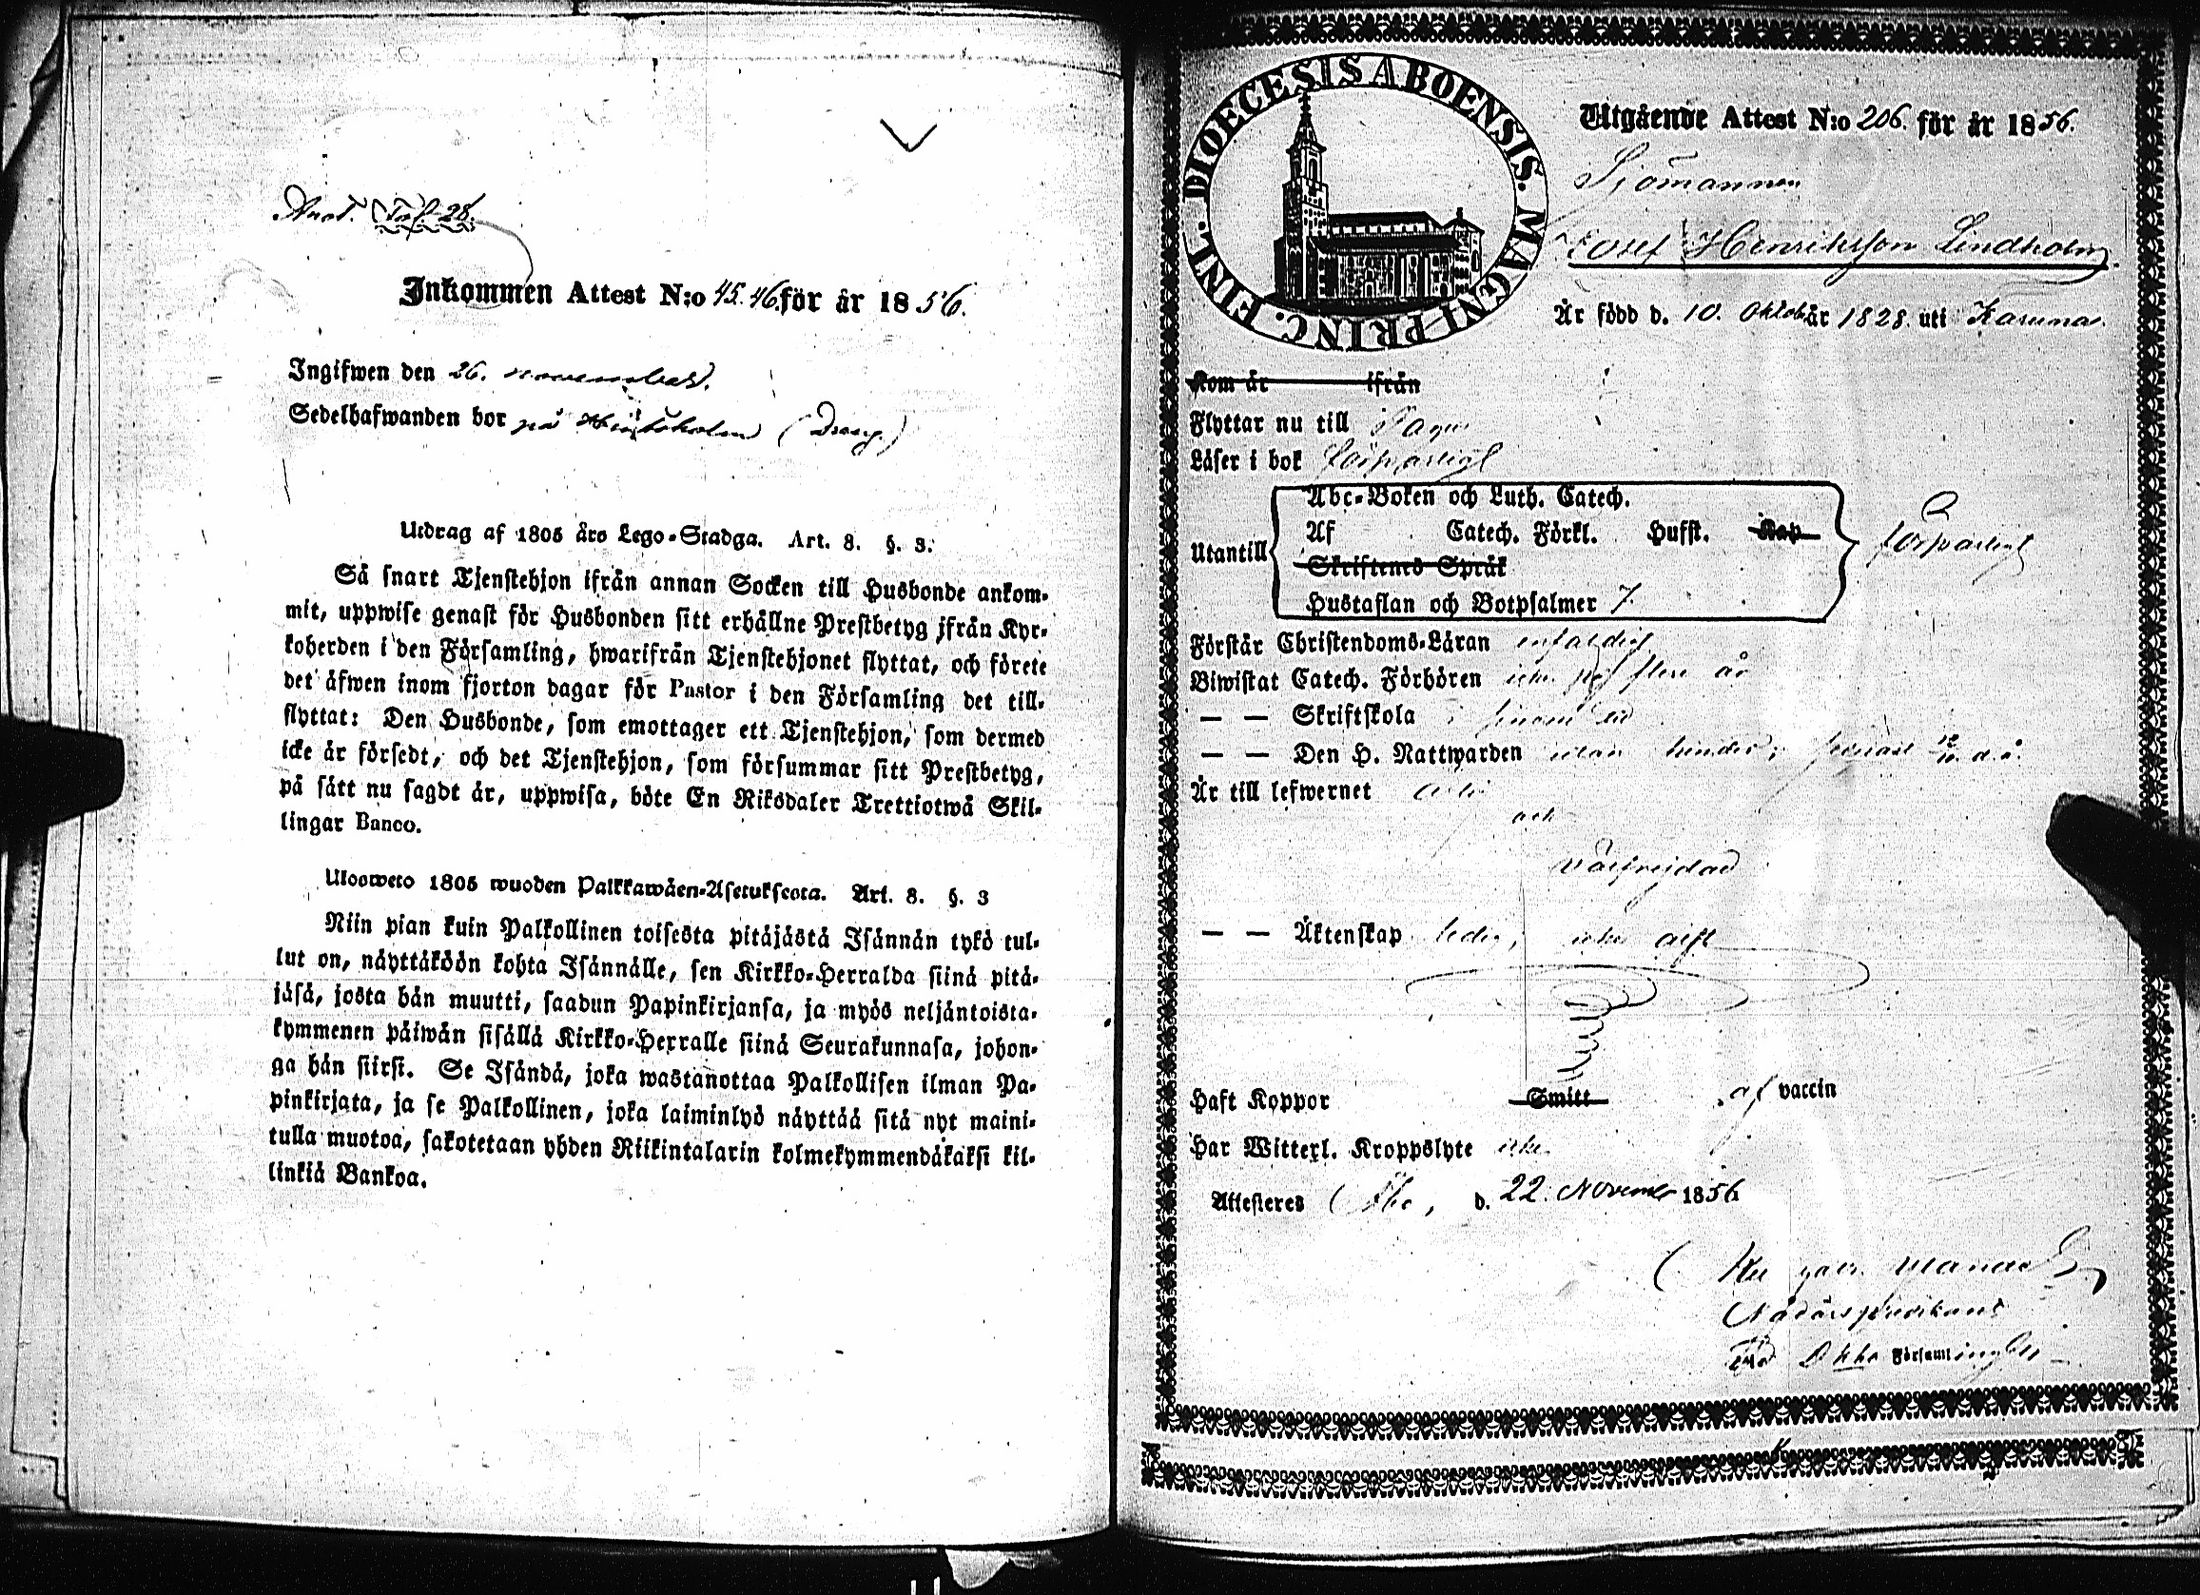 Anot. Taf. 28.
Inkommen Attest N:o 45. 46. för år 1856.
Ingifwen den 26. november.
Sedelhafwanden bor på (Dreng.)
Utdrag af 1805 års Lego-Stadga. Art. 8. §. 3.
Så snart Tjenstehjon ifrån annan Socken till Husbonde ankom-
mit, uppwise genast för Husbonden sitt erhållne Prestbetyg ifrån Kyr-
koherden i den Församling, hwarifrån Tjenstehjonet flyttat, och förete
det äfwen inom fjorton dagar för Pastor i den Församling det till-
flyttat: Den Husbonde, som emottager ett Tjenstehjon, som dermed
icke är försedt, och det Tjenstehjon, som försummar sitt Prestbetyg,
på sätt nu sagdt är, uppwisa, böte En Riksdaler Trettiotwå Skil-
lingar Banco.
Uloosweto 1805 wuoden Palkkawäen-Asetuksesta. Art. 8. §. 3
Niin pian kuin Palkollinen toisesta pitäjästä Isännän tykö tul-
lut on, näyttäköön kohta Isännälle, sen Kirkko-Herralda siinä pitä-
jäsä, josta hän muutti, saadun Papinkirjansa, ja myös neljäntoista-
kymmenen päiwän sisällä Kirkko-Herralle siinä Seurakunnasa, johon-
ga hän siirsi. Se Isändä, joka wastanottaa Palkollisen ilman Pa-
pinkirjata, ja se Palkollinen, joka laiminlyö näyttää sitä nyt maini-
tulla muotoa, sakotetaan yhden Riikintalarin kolmekymmendäkaksi kil-
linkiä Bankoa.
FINL. DIOECESIS ABOENSIS. MAGNI PRINC.
Utgående Attest N:o 206. för år 1856.
Sjömannen
Josef Henriksson Lindholm
Är född d. 10. Oktob år 1828. uti Karuna.
Kom år ifrån
Flyttar nu till Pagu
Läser i bok försvarligt
Utantill
Abc-Boken och Luth. Catech.
Af Catech. Förkl. Hufst. Kap
Skriftenes Språk
Hustaflan och Botpsalmer 7
försvarligt
Förstår Christendoms-Läran enfaldigt
Biwistat Catech. Förhören icke på flere år
— — Skriftskola
— — Den H. Nattwarden utan hinder, senast d.å.
Är till lefwernet
och
välfrejdad
— — Äktenskap ledig, icke gift
Haft Koppor Smitt af vaccin
Har Witterl. Kroppslyte icke
Attesteres Åbo, d. 22. November 1856
Nådårspredikant
Församling